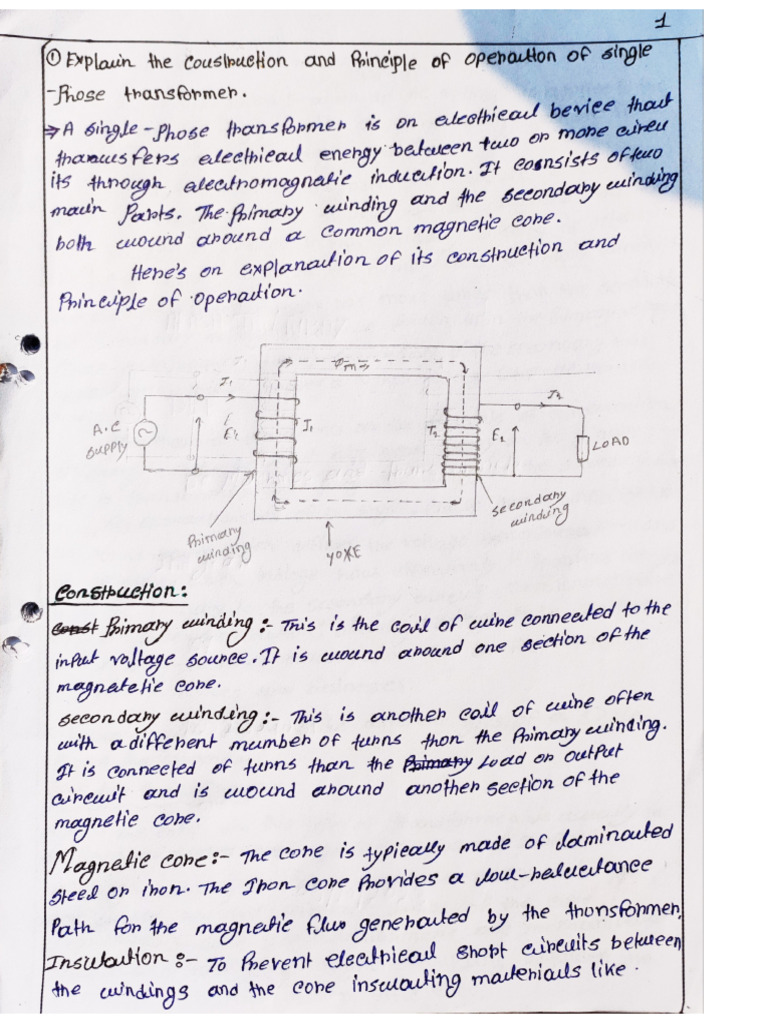 1
① Explain the Construction and Principle of operation of single
-Phase transformer.
⇒ A single-Phase transformer is an electrical device that
transfers electrical energy between two or more circu
its through electromagnetic induction. It consists of two
main Parts. The Primary winding and the secondary winding
both wound around a common magnetic core.
Here's an explanation of its construction and
Principle of operation.
Φm→
I1
I2
A.C
supply
E1
I1
T2
E2
LOAD
Primary
winding
YOKE
secondary
winding
Construction:
Const Primary winding :- This is the coil of wire connected to the
input voltage source. It is wound around one section of the
magnetetic core.
secondary winding :- This is another coil of wire often
with a different number of turns than the Primary winding.
It is connected of turns than the Primary Load or output
circuit and is wound around another section of the
magnetic core.
Magnetic core :- The core is typically made of laminated
steel or iron. The Iron core Provides a low-reluctance
Path for the magnetic flux generated by the transformer,
Insulation :- To Prevent electrical short circuits between
the windings and the core insulating materials like.